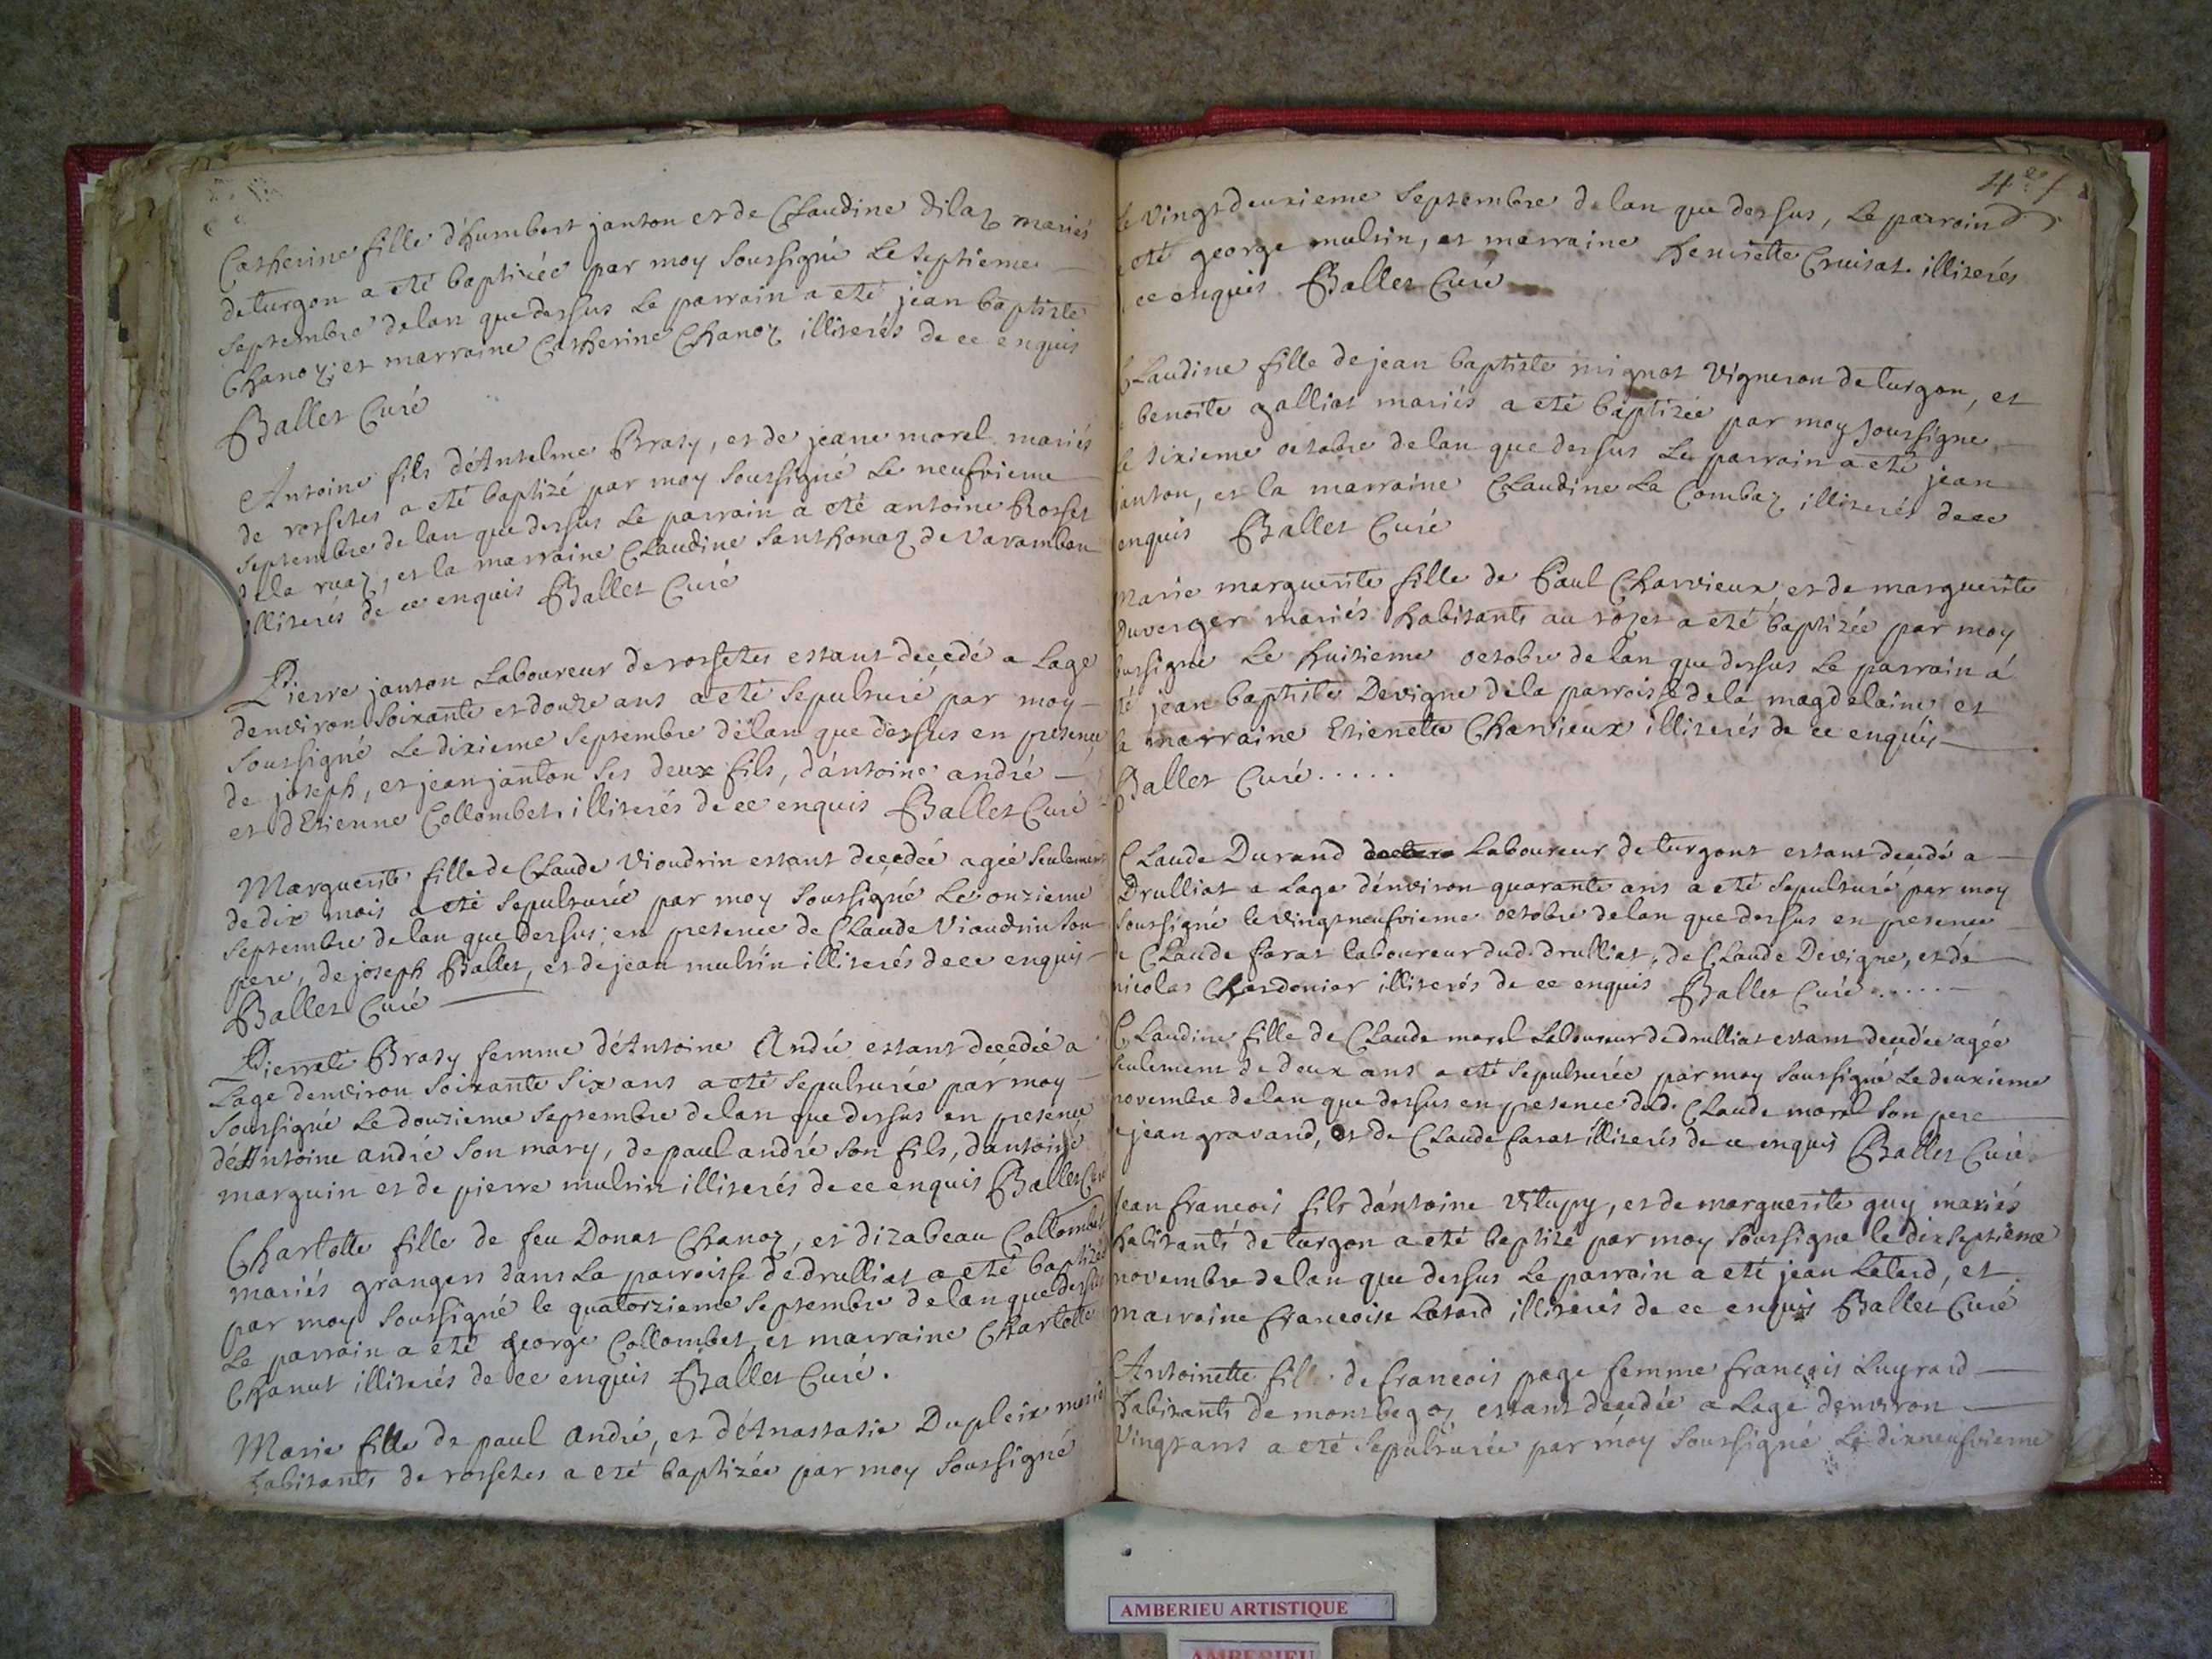 Catherine fille d'humbert janton et de Claudine Dilaz mariés
de turgon a eté baptizée par moy soussigné Le septieme
septembre de lan que dessus Le parrain a eté jean baptiste
Chanoz, et marraine Catherine Chanoz illiterés de ce enquis
Ballet Curé
Antoine fils d'Antelme Braty, et de jeane morel mariés
de rossetes a eté baptizé par moy soussigné Le neufvieme
septembre de lan que dessus Le parrain a eté antoine Rosset
de la ruaz, et la marraine Claudine santhonaz de Varambon
illiterés de ce enquis Ballet Curé
Pierre janton Laboureur de rossetes estant decedé a Lage
denviron soixante et douze ans a eté sepulturé par moy
soussigné Le dixieme septembre de lan que dessus en presence
de joseph, et jean janton ses deux fils, d'antoine andré
et d'Etienne Collombet illiterés de ce enquis Ballet Curé
Marguerite fille de Claude Vioudrin estant decedée agée seulement
de dix mois a eté sepulturée par moy soussigné Le onzieme
septembre de lan que dessus; en presence de Claude Vioudrin son
pere, de joseph Ballet, et de jean multin illiterés de ce enquis
Ballet Curé
Pierrete Braty femme d'Antoine André estant decedée a
Lage denviron soixante six ans a eté sepulturée par moy
soussigné Le douzieme septembre de lan que dessus en presence
d'Antoine andré son mary, de paul andré son fils, dantoine
marguin et de pierre multin illiterés de ce enquis Ballet Curé
Charlotte fille de feu Donat Chanoz, et dizabeau Collombet
mariés grangers dans La parroisse de drulliat a eté baptizée
par moy soussigné le quatorzieme septembre de lan que dessus
Le parrain a eté george Collombet, et marraine Charlotte
Chanut illiterés de ce enquis Ballet Curé.
Marie fille de paul andré, et d'Anastasie Dupleix mariés
habitants de rossetes a eté baptizée par moy soussigné
le vingtdeuxieme septembre de lan que dessus, Le parrain a
eté george multin, et marraine henriette Cruisat illiterés
ce enquis Ballet Curé
Claudine fille de jean baptiste mignot Vigneron de turgon, et
benoite galliat mariés a eté baptizée par moy soussigné
le sixieme octobre de lan que dessus Le parrain a eté jean
janton, et la marraine Claudine La Combaz illiterés de ce
enquis Ballet Curé
Marie marguerite fille de Paul Charvieux, et de marguerite
Duverger mariés habitants au rozet a eté baptizée par moy
soussigné Le huitieme octobre de lan que dessus Le parrain a
eté jean baptiste Devigne de la parroisse de la magdelaine et
la marraine Etienette Charvieux illiterés de ce enquis
Ballet Curé.....
Claude Durand Laboureur de turgont estant decedé a
Drulliat a Lage d'environ quarante ans a eté sepulturé par moy
soussigné le vingtneufvieme octobre de lan que dessus en presence
de Claude farat laboureur dud. drulliat, de Claude Devigne, et de
nicolas Chardonier illiterés de ce enquis Ballet Curé......
Claudine fille de Claude morel Laboureur de drulliat estant decedée agée
seulement de deux ans a eté sepulturée par moy soussigné Le deuxieme
novembre de lan que dessus en presence dud. Claude morel son pere
de jean gravand, et de Claude farat illiterés de ce enquis Ballet Curé
Jean francois fils d'antoine Vitupy, et de marguerite guy mariés
habitants de turgon a eté baptizé par moy soussigné le dixseptieme
novembre de lan que dessus Le parrain a eté jean Letard, et
marraine francoise Latard illiterés de ce enquis Ballet Curé
Antoinette fille de francois page femme francois Luyrard
habitants de montbegoz estant decedée a Lage denviron
Vingt ans a eté sepulturée par moy soussigné Le dixneufvieme
AMBERIEU ARTISTIQUE
AMBERIEU